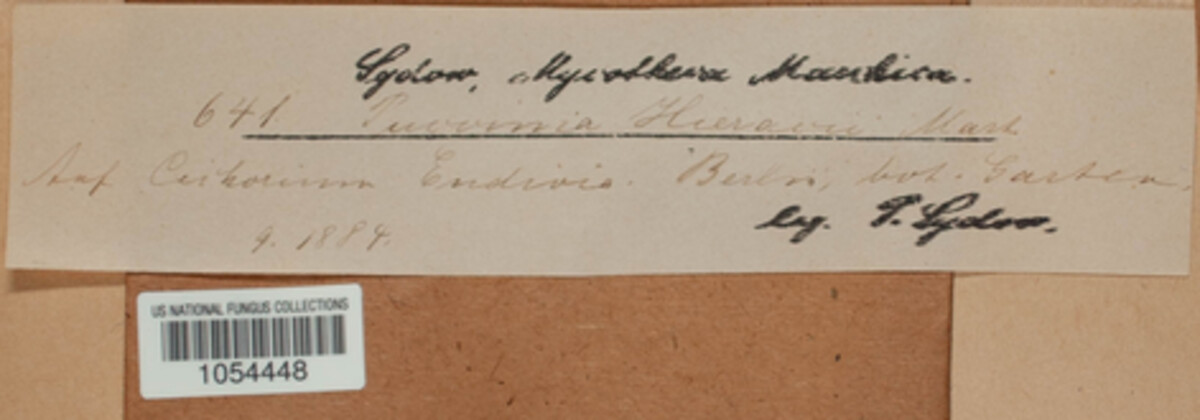 Sydow, Mycotheca Marchica.
641 Puccinia Hieracii Mart
Auf Cichorium Endivia. Berlin, bot. Garten.
9. 1884.
leg. P. Sydow.
US NATIONAL FUNGUS COLLECTIONS
1054448